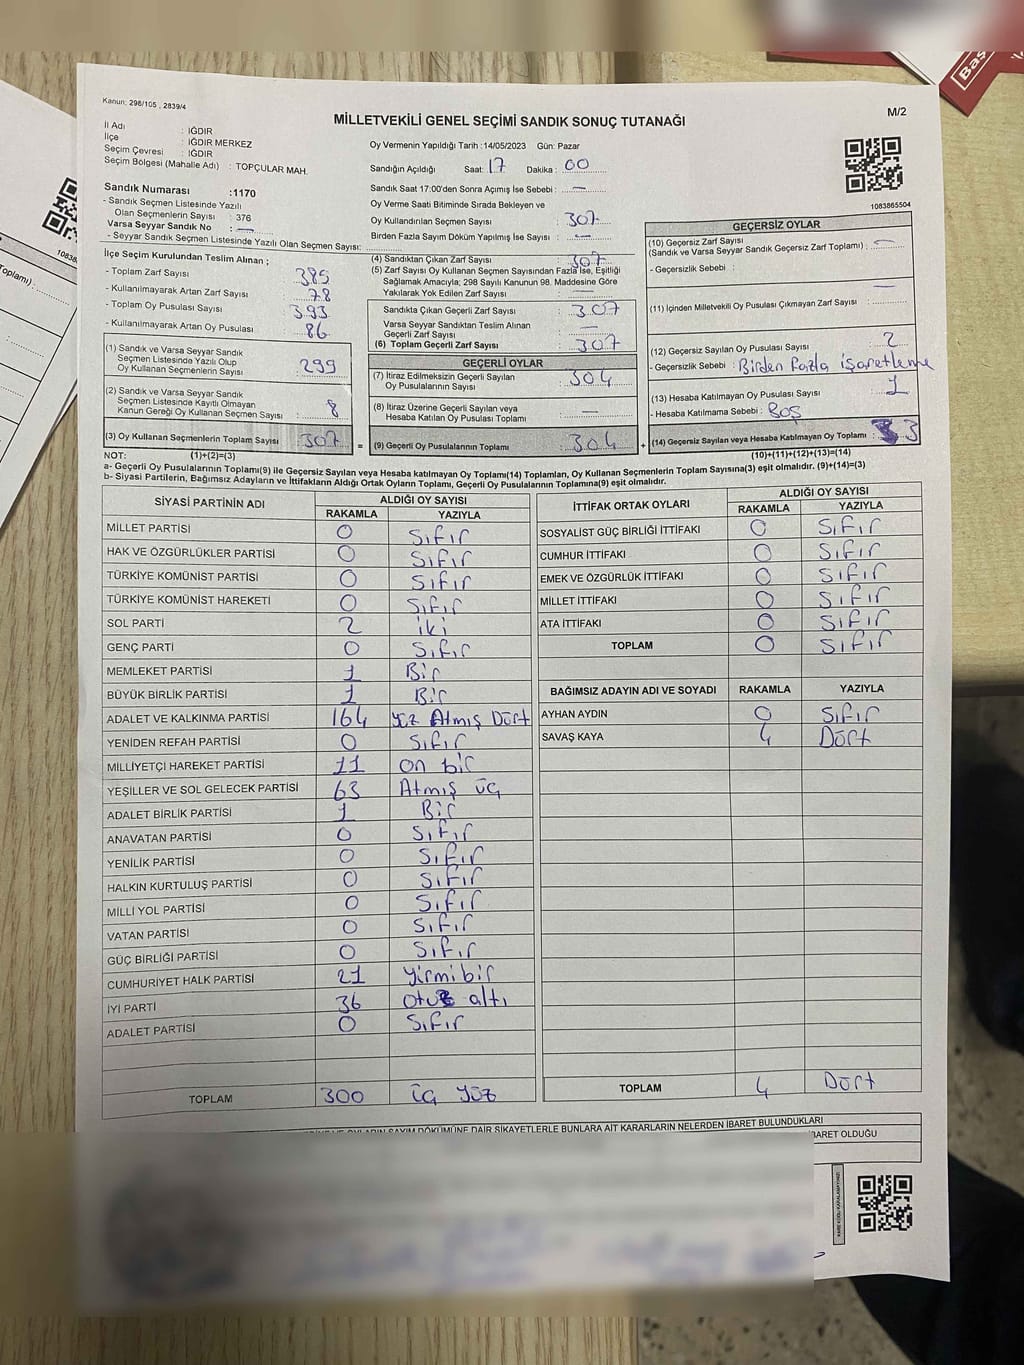 Kanun: 298/105 , 2839/4
M/2
MİLLETVEKİLİ GENEL SEÇİMİ SANDIK SONUÇ TUTANAĞI
İl Adı : IĞDIR
İlçe : IĞDIR MERKEZ
Seçim Çevresi : IĞDIR
Seçim Bölgesi (Mahalle Adı) : TOPÇULAR MAH.
Sandık Numarası :1170
- Sandık Seçmen Listesinde Yazılı
Olan Seçmenlerin Sayısı : 376
Varsa Seyyar Sandık No : —
- Seyyar Sandık Seçmen Listesinde Yazılı Olan Seçmen Sayısı:
Oy Vermenin Yapıldığı Tarih :14/05/2023 Gün: Pazar
Sandığın Açıldığı Saat: 17 Dakika : 00
Sandık Saat 17:00'den Sonra Açılmış İse Sebebi : —
Oy Verme Saati Bitiminde Sırada Bekleyen ve
Oy Kullandırılan Seçmen Sayısı 307
Birden Fazla Sayım Döküm Yapılmış İse Sayısı : —
1083865504
İlçe Seçim Kurulundan Teslim Alınan ;
- Toplam Zarf Sayısı 385
- Kullanılmayarak Artan Zarf Sayısı 78
- Toplam Oy Pusulası Sayısı 393
- Kullanılmayarak Artan Oy Pusulası 86
(1) Sandık ve Varsa Seyyar Sandık
Seçmen Listesinde Yazılı Olup
Oy Kullanan Seçmenlerin Sayısı : 299
(2) Sandık ve Varsa Seyyar Sandık
Seçmen Listesinde Kayıtlı Olmayan
Kanun Gereği Oy Kullanan Seçmen Sayısı : 8
(3) Oy Kullanan Seçmenlerin Toplam Sayısı 307
(1)+(2)=(3)
(4) Sandıktan Çıkan Zarf Sayısı 307
(5) Zarf Sayısı Oy Kullanan Seçmen Sayısından Fazla İse, Eşitliği
Sağlamak Amacıyla; 298 Sayılı Kanunun 98. Maddesine Göre
Yakılarak Yok Edilen Zarf Sayısı : —
Sandıkta Çıkan Geçerli Zarf Sayısı : 307
Varsa Seyyar Sandıktan Teslim Alınan
Geçerli Zarf Sayısı —
(6) Toplam Geçerli Zarf Sayısı : 307
GEÇERLİ OYLAR
(7) İtiraz Edilmeksizin Geçerli Sayılan
Oy Pusulalarının Sayısı : 304
(8) İtiraz Üzerine Geçerli Sayılan veya
Hesaba Katılan Oy Pusulası Toplamı : —
= (9) Geçerli Oy Pusulalarının Toplamı : 304
GEÇERSİZ OYLAR
(10) Geçersiz Zarf Sayısı
(Sandık ve Varsa Seyyar Sandık Geçersiz Zarf Toplamı) : —
- Geçersizlik Sebebi :
(11) İçinden Milletvekili Oy Pusulası Çıkmayan Zarf Sayısı : —
(12) Geçersiz Sayılan Oy Pusulası Sayısı : 2
- Geçersizlik Sebebi : Birden fazla işaretleme
(13) Hesaba Katılmayan Oy Pusulası Sayısı : 1
- Hesaba Katılmama Sebebi : Boş
+ (14) Geçersiz Sayılan veya Hesaba Katılmayan Oy Toplamı : 3
(10)+(11)+(12)+(13)=(14)
NOT:
a- Geçerli Oy Pusulalarının Toplamı(9) ile Geçersiz Sayılan veya Hesaba katılmayan Oy Toplamı(14) Toplamları, Oy Kullanan Seçmenlerin Toplam Sayısına(3) eşit olmalıdır. (9)+(14)=(3)
b- Siyasi Partilerin, Bağımsız Adayların ve İttifakların Aldığı Ortak Oyların Toplamı, Geçerli Oy Pusulalarının Toplamına(9) eşit olmalıdır.
SİYASİ PARTİNİN ADI ALDIĞI OY SAYISI
RAKAMLA YAZIYLA
MİLLET PARTİSİ 0 Sıfır
HAK VE ÖZGÜRLÜKLER PARTİSİ 0 Sıfır
TÜRKİYE KOMÜNİST PARTİSİ 0 Sıfır
TÜRKİYE KOMÜNİST HAREKETİ 0 Sıfır
SOL PARTİ 2 iki
GENÇ PARTİ 0 Sıfır
MEMLEKET PARTİSİ 1 Bir
BÜYÜK BİRLİK PARTİSİ 1 Bir
ADALET VE KALKINMA PARTİSİ 164 Yüz Atmış Dört
YENİDEN REFAH PARTİSİ 0 Sıfır
MİLLİYETÇİ HAREKET PARTİSİ 11 on bir
YEŞİLLER VE SOL GELECEK PARTİSİ 63 Atmış üç
ADALET BİRLİK PARTİSİ 1 Bir
ANAVATAN PARTİSİ 0 Sıfır
YENİLİK PARTİSİ 0 Sıfır
HALKIN KURTULUŞ PARTİSİ 0 Sıfır
MİLLİ YOL PARTİSİ 0 Sıfır
VATAN PARTİSİ 0 Sıfır
GÜÇ BİRLİĞİ PARTİSİ 0 Sıfır
CUMHURİYET HALK PARTİSİ 21 Yirmi bir
İYİ PARTİ 36 otuz altı
ADALET PARTİSİ 0 Sıfır
TOPLAM 300 üç Yüz
İTTİFAK ORTAK OYLARI ALDIĞI OY SAYISI
RAKAMLA YAZIYLA
SOSYALİST GÜÇ BİRLİĞİ İTTİFAKI 0 Sıfır
CUMHUR İTTİFAKI 0 Sıfır
EMEK VE ÖZGÜRLÜK İTTİFAKI 0 Sıfır
MİLLET İTTİFAKI 0 Sıfır
ATA İTTİFAKI 0 Sıfır
TOPLAM 0 Sıfır
BAĞIMSIZ ADAYIN ADI VE SOYADI RAKAMLA YAZIYLA
AYHAN AYDIN 0 Sıfır
SAVAŞ KAYA 4 Dört
TOPLAM 4 Dört
SAYIM DÖKÜMÜNE DAİR ŞİKAYETLERLE BUNLARA AİT KARARLARIN NELERDEN İBARET BULUNDUKLARI
İBARET OLDUĞU
Baş
1083
Toplamı) :